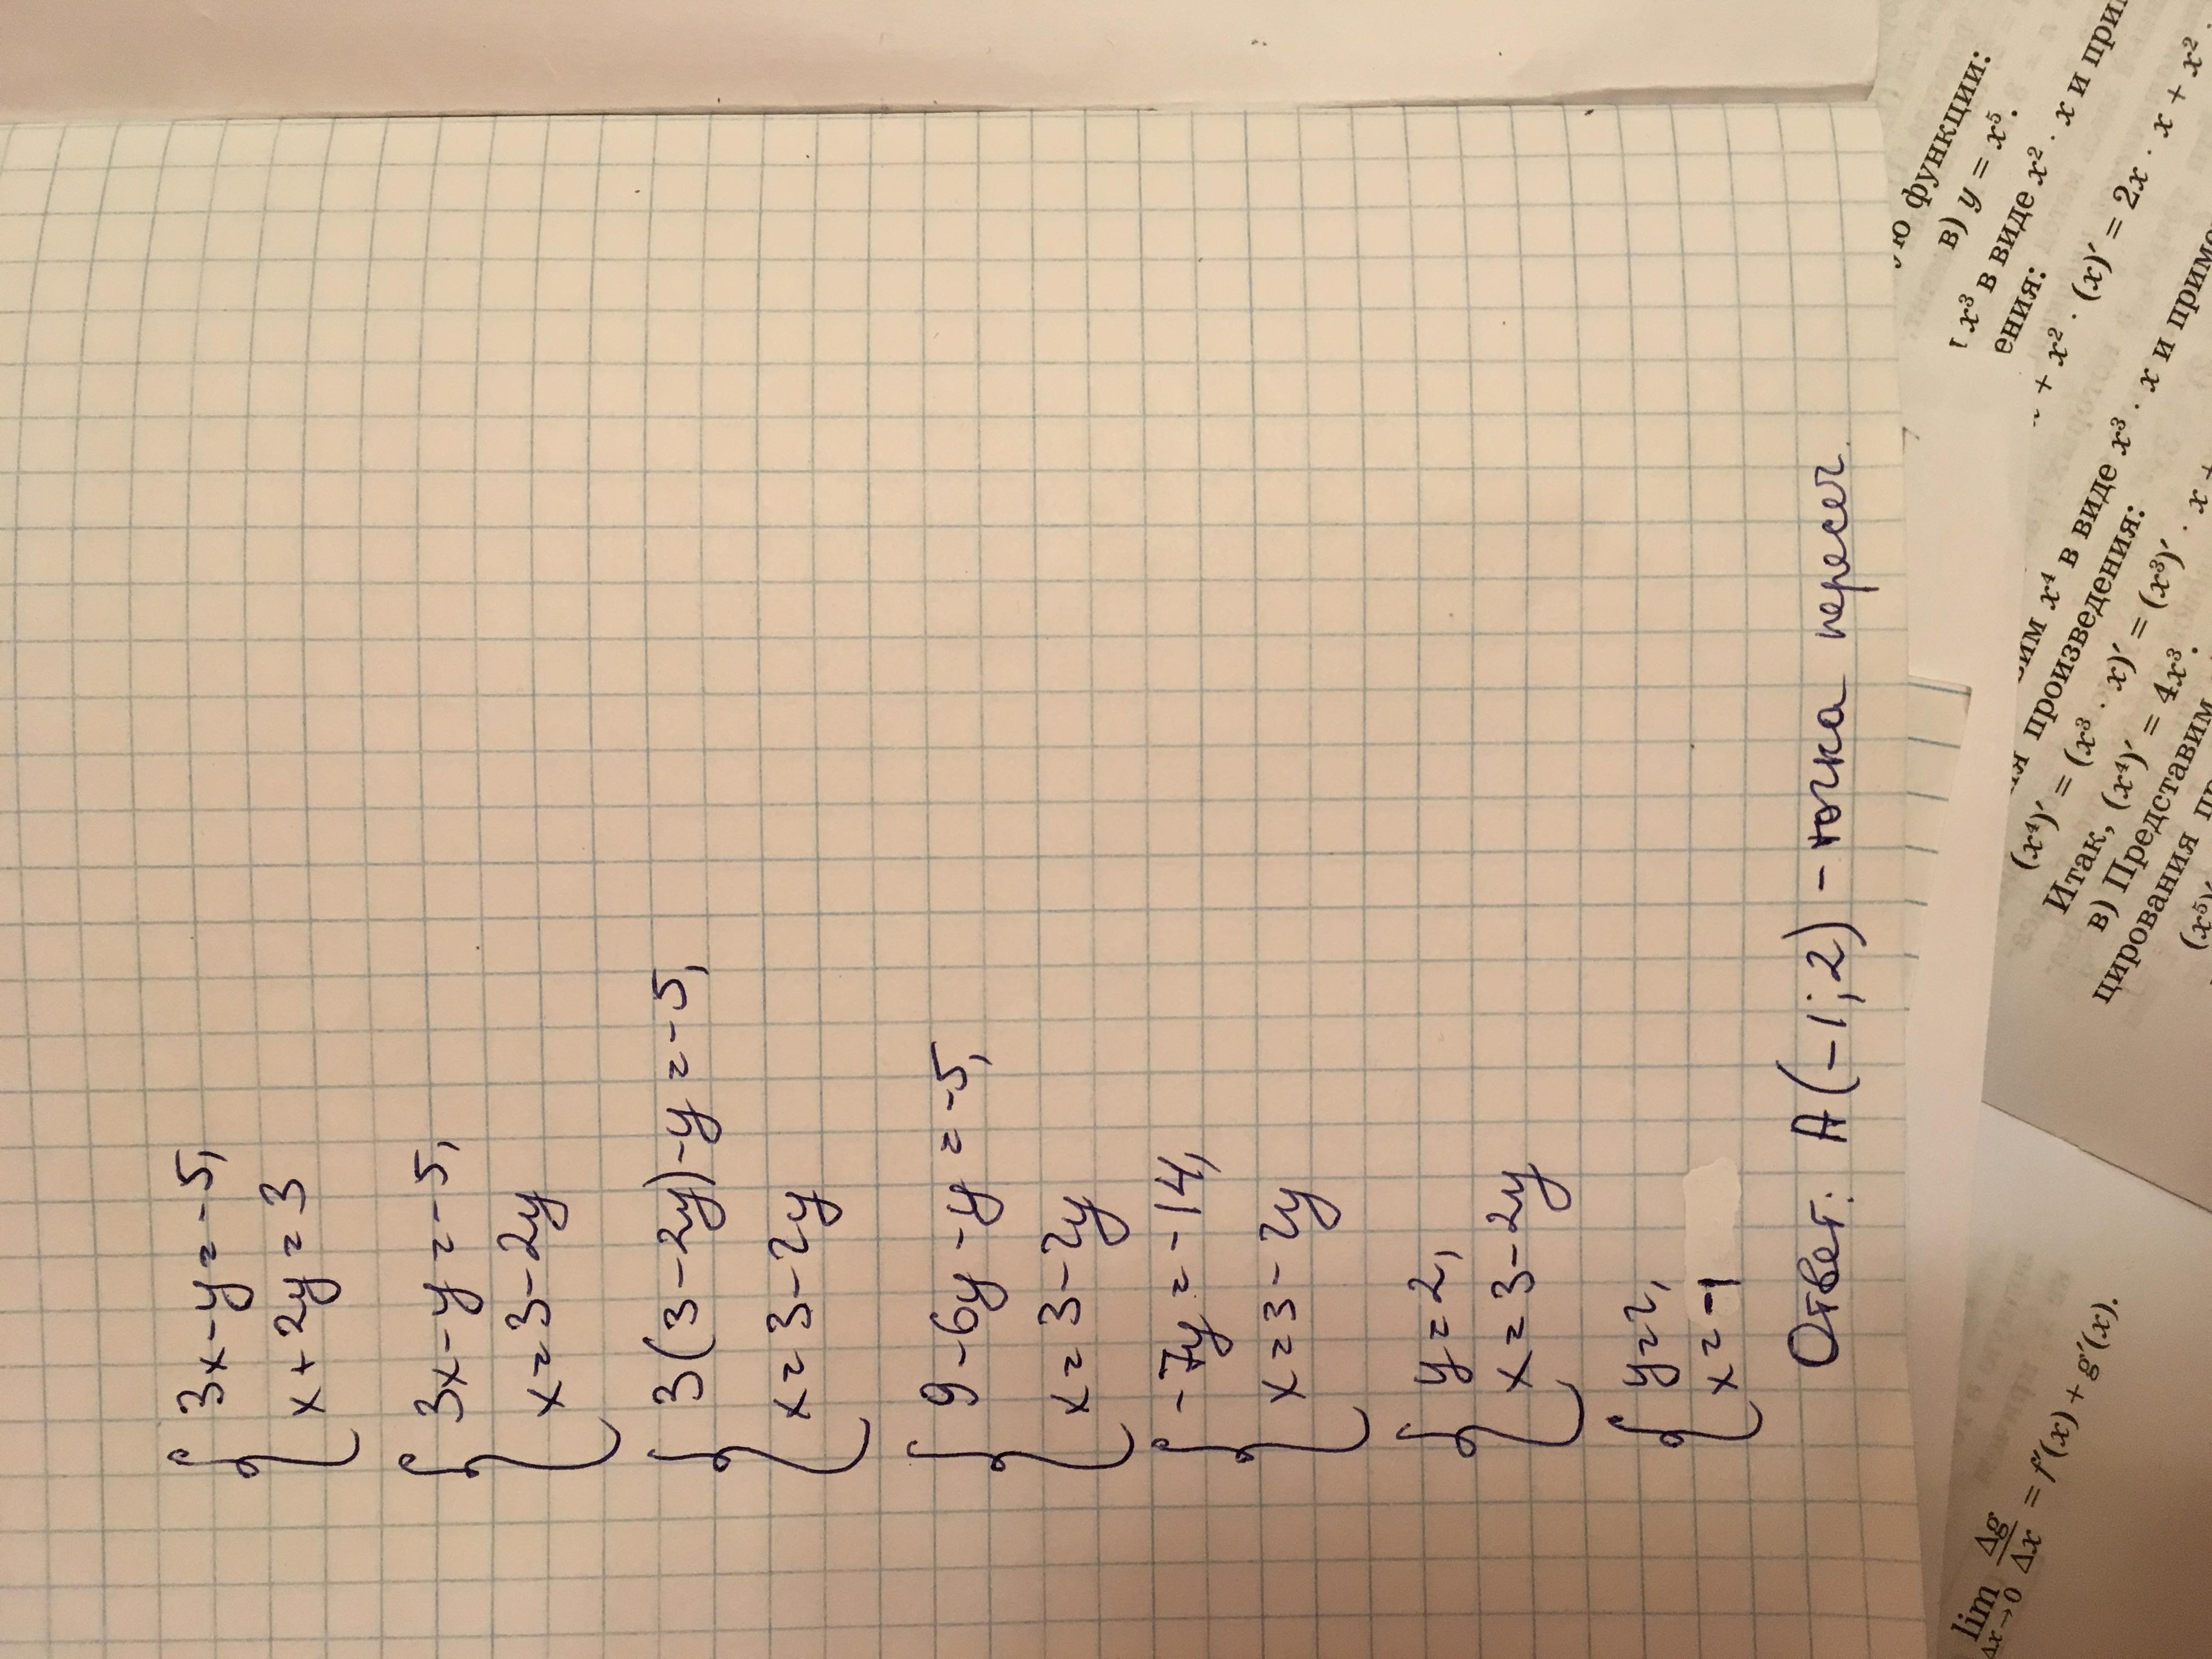 3x-y=-5,
x+2y=3
3x-y=-5,
x=3-2y
3(3-2y)-y=-5,
x=3-2y
9-6y-y=-5,
x=3-2y
-7y=-14,
x=3-2y
y=2,
x=3-2y
y=2,
x=-1
Ответ: A(-1;2) - точка пересеч.
ю функции:
в) y = x⁵.
x³ в виде x² · x и при
ения:
+ x² · (x)′ = 2x · x + x² ·
вим x⁴ в виде x³ · x и приме
ия произведения:
(x⁴)′ = (x³ · x)′ = (x³)′ · x +
Итак, (x⁴)′ = 4x³.
в) Представим
цирования пр
(x⁵)′
lim Δg/Δx = f′(x) + g′(x).
Δx→0